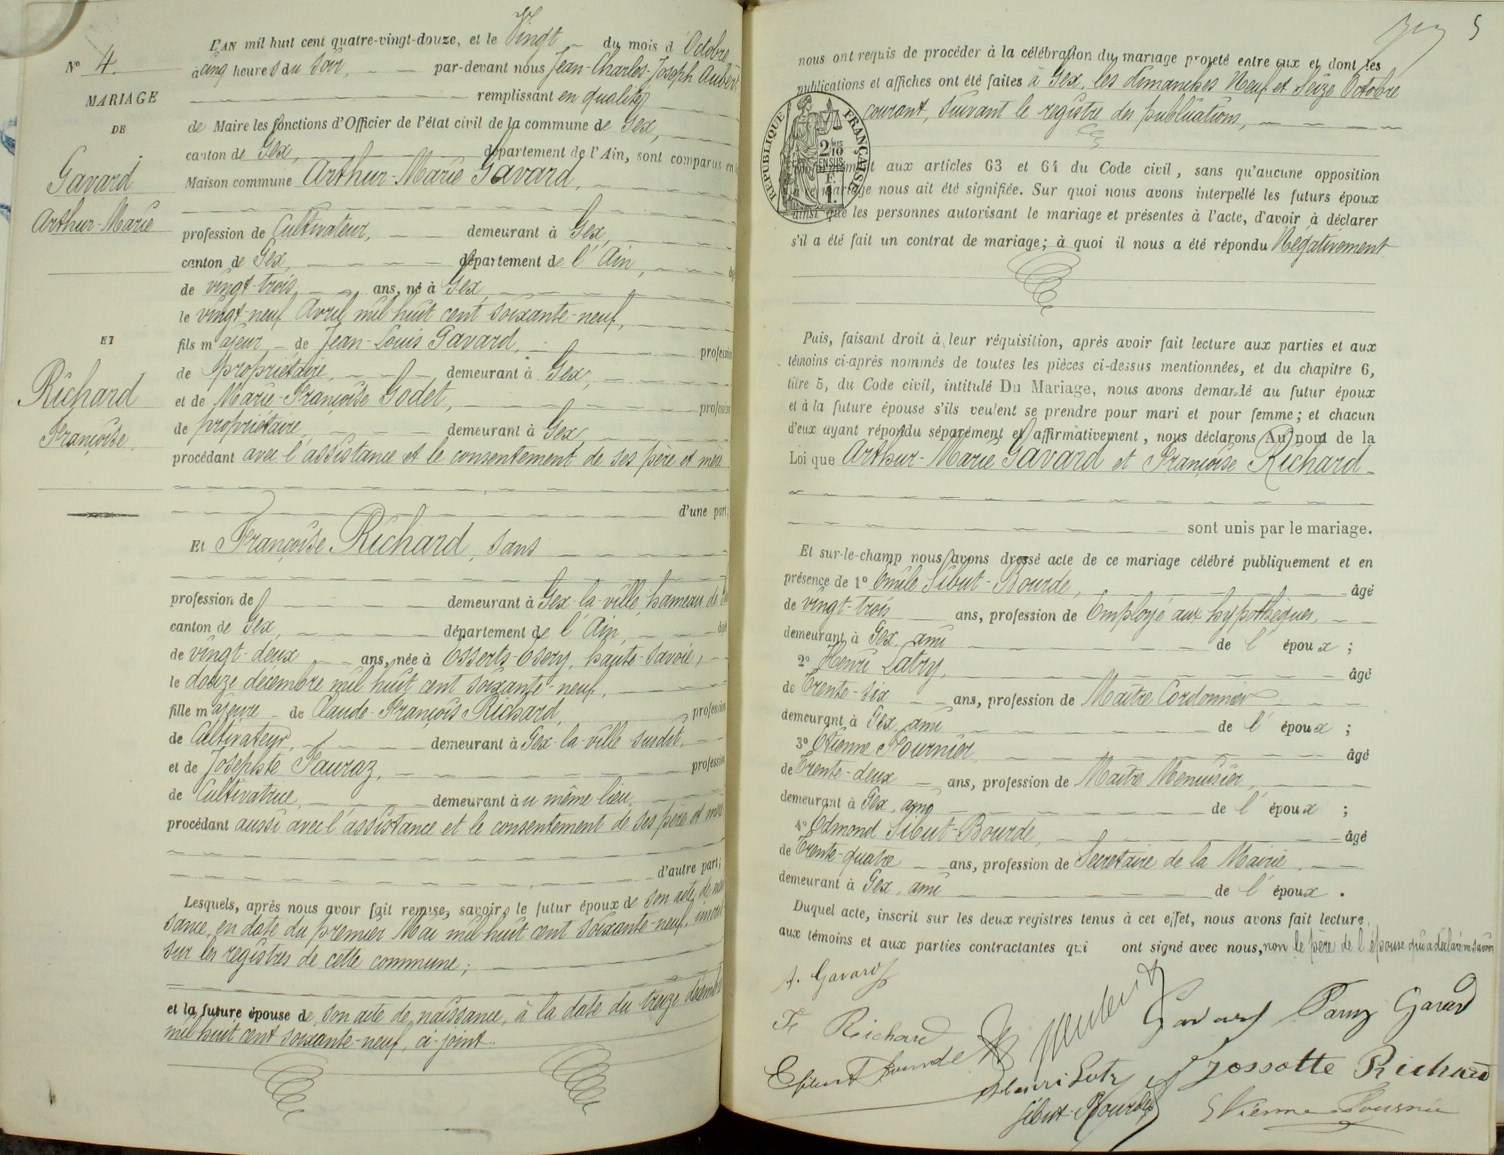 L'AN mil huit cent quatre-vingt-douze, et le Vingt du mois d'Octobre
à cinq heures du soir, par-devant nous Jean-Charles-Joseph Aubert
remplissant en qualité
de Maire les fonctions d'Officier de l'état civil de la commune de Gex,
canton de Gex, département de l'Ain, sont comparus en
Maison commune Arthur-Marie Gavard,
profession de Cultivateur, demeurant à Gex,
canton de Gex, département de l'Ain, âgé
de vingt-trois ans, né à Gex
le vingt-neuf Avril mil huit cent soixante-neuf,
fils majeur de Jean-Louis Gavard, profession
de propriétaire, demeurant à Gex,
et de Marie-Françoise Godet, profession
de propriétaire, demeurant à Gex
procédant avec l'assistance et le consentement de ses père et mère
d'une part;
Et Françoise Richard, sans
profession de demeurant à Gex-la-ville, hameau de
canton de Gex, département de l'Ain, âgée
de vingt-deux ans, née à Esserts-Esery, haute-Savoie,
le douze décembre mil huit cent soixante-neuf,
fille majeure de Claude-François Richard, profession
de Cultivateur, demeurant à Gex-la-ville susdit,
et de Josephte Fauraz, profession
de Cultivatrice, demeurant au même lieu,
procédant aussi avec l'assistance et le consentement de ses père et mère
d'autre part;
Lesquels, après nous avoir fait remise, savoir, le futur époux de son acte de nais
sance, en date du premier Mai mil huit cent soixante-neuf, inscrit
sur les registres de cette commune;
et la future épouse de son acte de naissance, à la date du treize décembre
mil huit cent soixante-neuf, ci-joint.
N° 4.
MARIAGE
DE
Gavard
Arthur-Marie
ET
Richard
Françoise.
5
nous ont requis de procéder à la célébration du mariage projeté entre eux et dont les
publications et affiches ont été faites à Gex, les dimanches Neuf et Seize Octobre
courant, suivant le registre des publications,
RÉPUBLIQUE FRANÇAISE
2/10 EN SUS
1 F.
aux articles 63 et 64 du Code civil, sans qu'aucune opposition
nous ait été signifiée. Sur quoi nous avons interpellé les futurs époux
ainsi que les personnes autorisant le mariage et présentes à l'acte, d'avoir à déclarer
s'il a été fait un contrat de mariage; à quoi il nous a été répondu Négativement
Puis, faisant droit à leur réquisition, après avoir fait lecture aux parties et aux
témoins ci-après nommés de toutes les pièces ci-dessus mentionnées, et du chapitre 6,
titre 5, du Code civil, intitulé Du Mariage, nous avons demandé au futur époux
et à la future épouse s'ils veulent se prendre pour mari et pour femme; et chacun
d'eux ayant répondu séparément et affirmativement, nous déclarons Au nom de la
Loi que Arthur-Marie Gavard et Françoise Richard
sont unis par le mariage.
Et sur-le-champ nous avons dressé acte de ce mariage célébré publiquement et en
présence de 1° Emile Sibut-Bourde, âgé
de vingt-trois ans, profession de Employé aux hypothèques,
demeurant à Gex, ami de l'époux;
2° Henri Lutry, âgé
de Trente-six ans, profession de Maître Cordonnier
demeurant à Gex, ami de l'époux;
3° Etienne Fournier âgé
de Trente-deux ans, profession de Maître Menuisier,
demeurant à Gex, ami de l'époux;
4° Edmond Sibut-Bourde, âgé
de Trente-quatre ans, profession de Secrétaire de la Mairie,
demeurant à Gex, ami de l'époux.
Duquel acte, inscrit sur les deux registres tenus à cet effet, nous avons fait lecture
aux témoins et aux parties contractantes qui ont signé avec nous, non le père de l'épouse qui a déclaré ne savoir
A. Gavard
F. Richard
Gavard Fany Gavard
Josephte Richard
Henri
Sibut-Bourde
Etienne Fournier